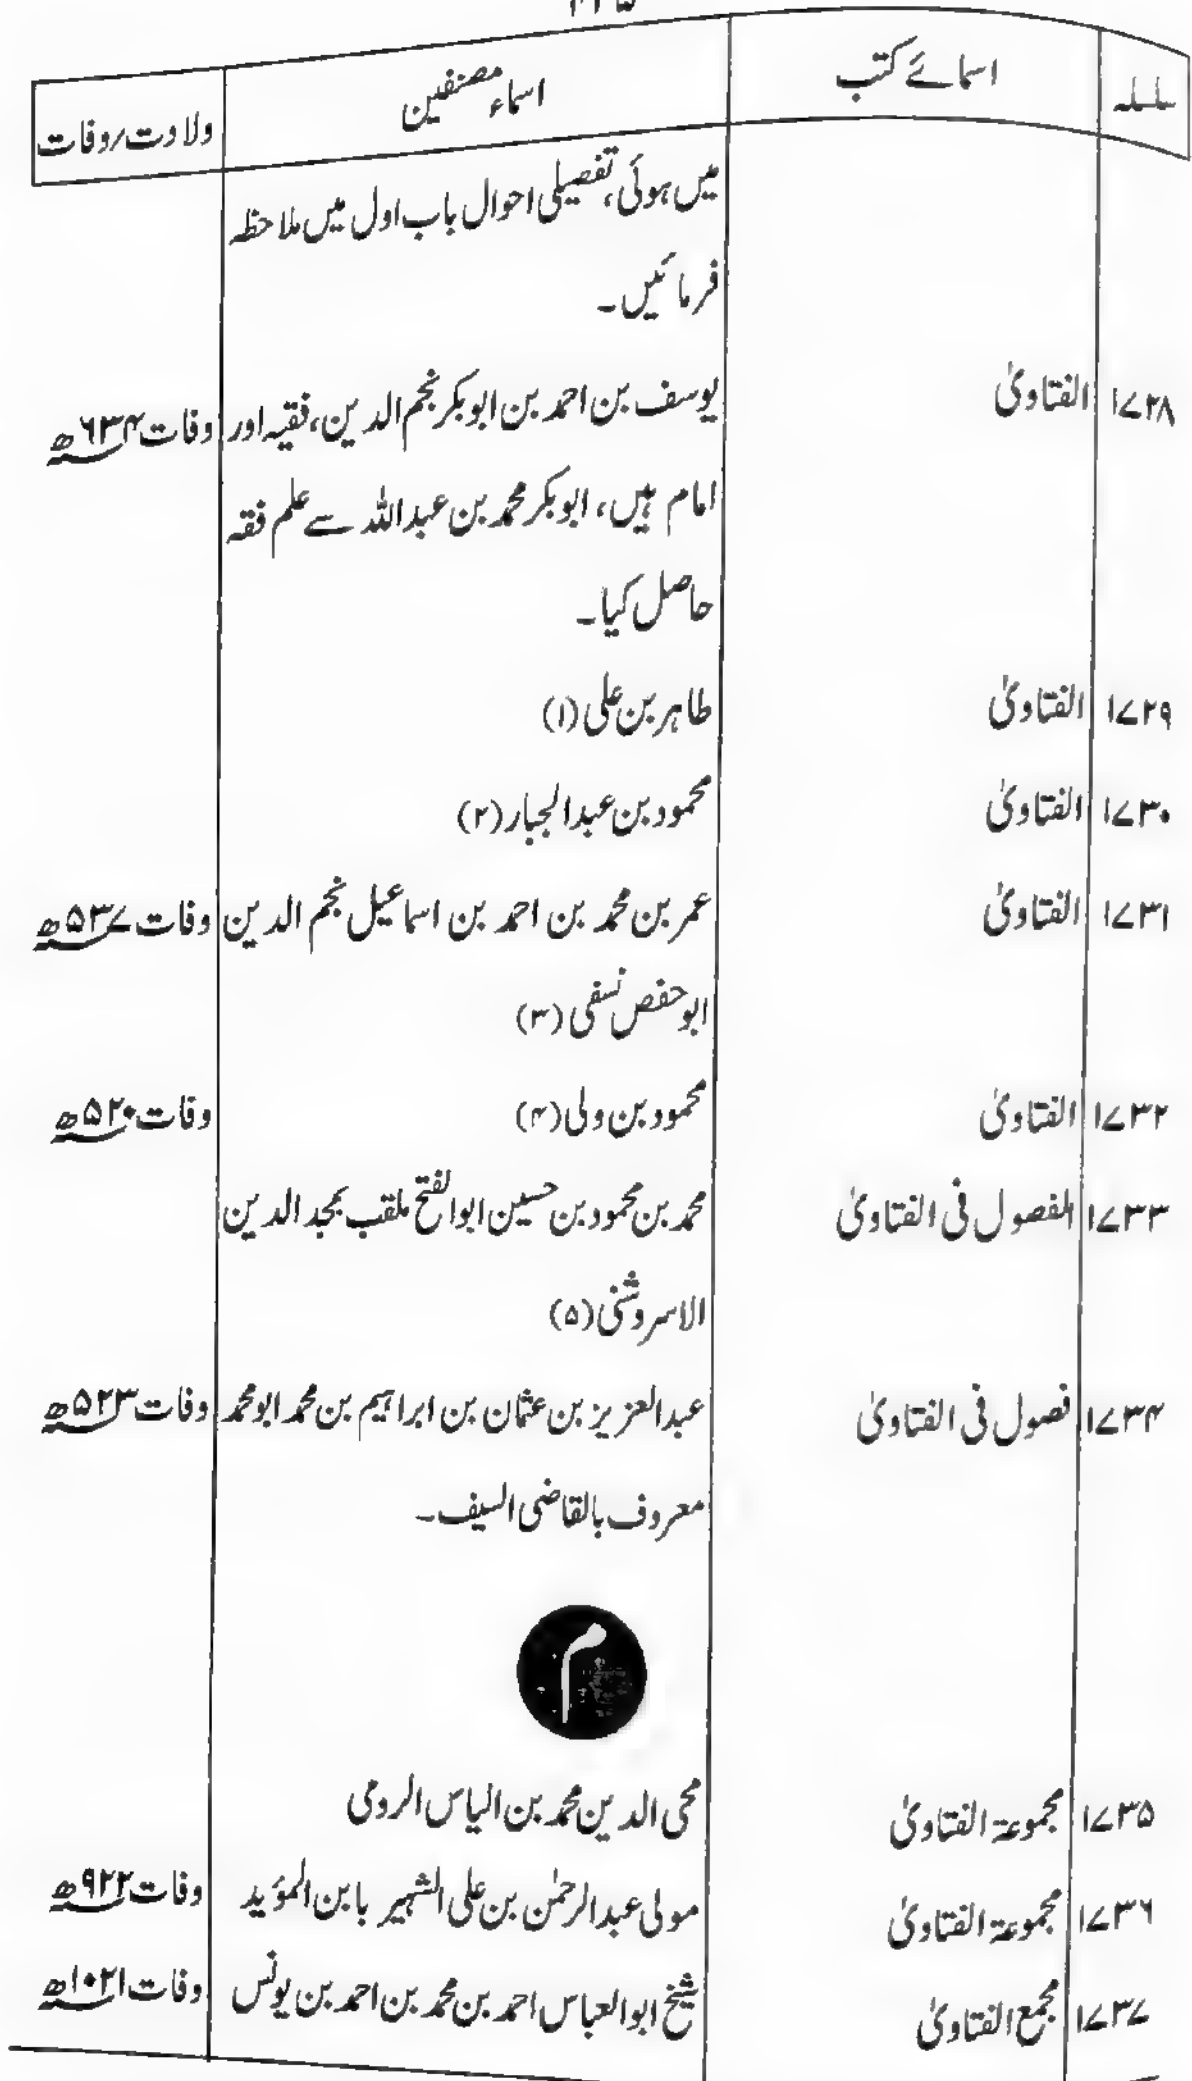 سلسلہ اسمائے کتب اسماء مصنفین ولادت/وفات
میں ہوئی، تفصیلی احوال باب اول میں ملاحظہ
فرمائیں۔
۱۷۲۸ الفتاویٰ یوسف بن احمد بن ابو بکر نجم الدین، فقیہ اور وفات ۶۳۴ھ
امام ہیں، ابو بکر محمد بن عبداللہ سے علم فقہ
حاصل کیا۔
۱۷۲۹ الفتاویٰ طاہر بن علی (۱)
۱۷۳۰ الفتاویٰ محمود بن عبدالجبار (۲)
۱۷۳۱ الفتاویٰ عمر بن محمد بن احمد بن اسماعیل نجم الدین وفات ۵۳۷ھ
ابو حفص نسفی (۳)
۱۷۳۲ الفتاویٰ محمود بن ولی (۴) وفات ۵۲۰ھ
۱۷۳۳ الفصول فی الفتاویٰ محمد بن محمود بن حسین ابوالفتح ملقب بمجد الدین
الاسروشنی (۵)
۱۷۳۴ فصول فی الفتاویٰ عبدالعزیز بن عثمان بن ابراہیم بن محمد ابو محمد وفات ۵۲۳ھ
معروف بالقاضی السیف۔
م
۱۷۳۵ مجموعۃ الفتاویٰ محی الدین محمد بن الیاس الرومی
۱۷۳۶ مجموعۃ الفتاویٰ مولی عبدالرحمٰن بن علی الشہیر بابن المؤید وفات ۹۲۲ھ
۱۷۳۷ مجمع الفتاویٰ شیخ ابوالعباس احمد بن محمد بن احمد بن یونس وفات ۱۰۲۱ھ